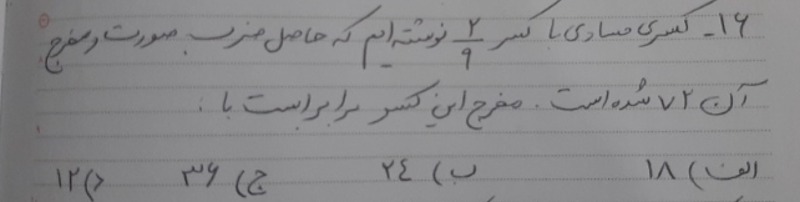 ۱۶- کسری مساوی با کسر ۲/۹ نوشته ایم که حاصل ضرب صورت و مخرج
آن ۷۲ شده است. مخرج این کسر برابر است با :
الف) ۱۸ ب) ۲۴ ج) ۳۶ د) ۱۲